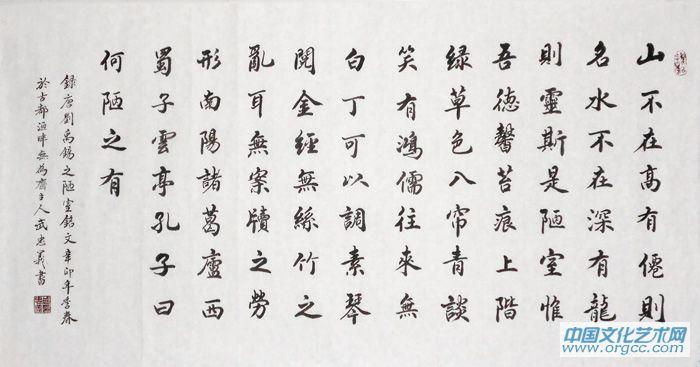 山不在高有僊則
名水不在深有龍
則靈斯是陋室惟
吾德馨苔痕上階
綠草色入帘青談
笑有鴻儒往來無
白丁可以調素琴
閱金經無絲竹之
亂耳無案牘之勞
形南陽諸葛廬西
蜀子雲亭孔子曰
何陋之有
錄唐劉禹錫之陋室銘文辛卯年季春
於古都洹畔無為齋主人武忠義書
中国文化艺术网
www.orgcc.com